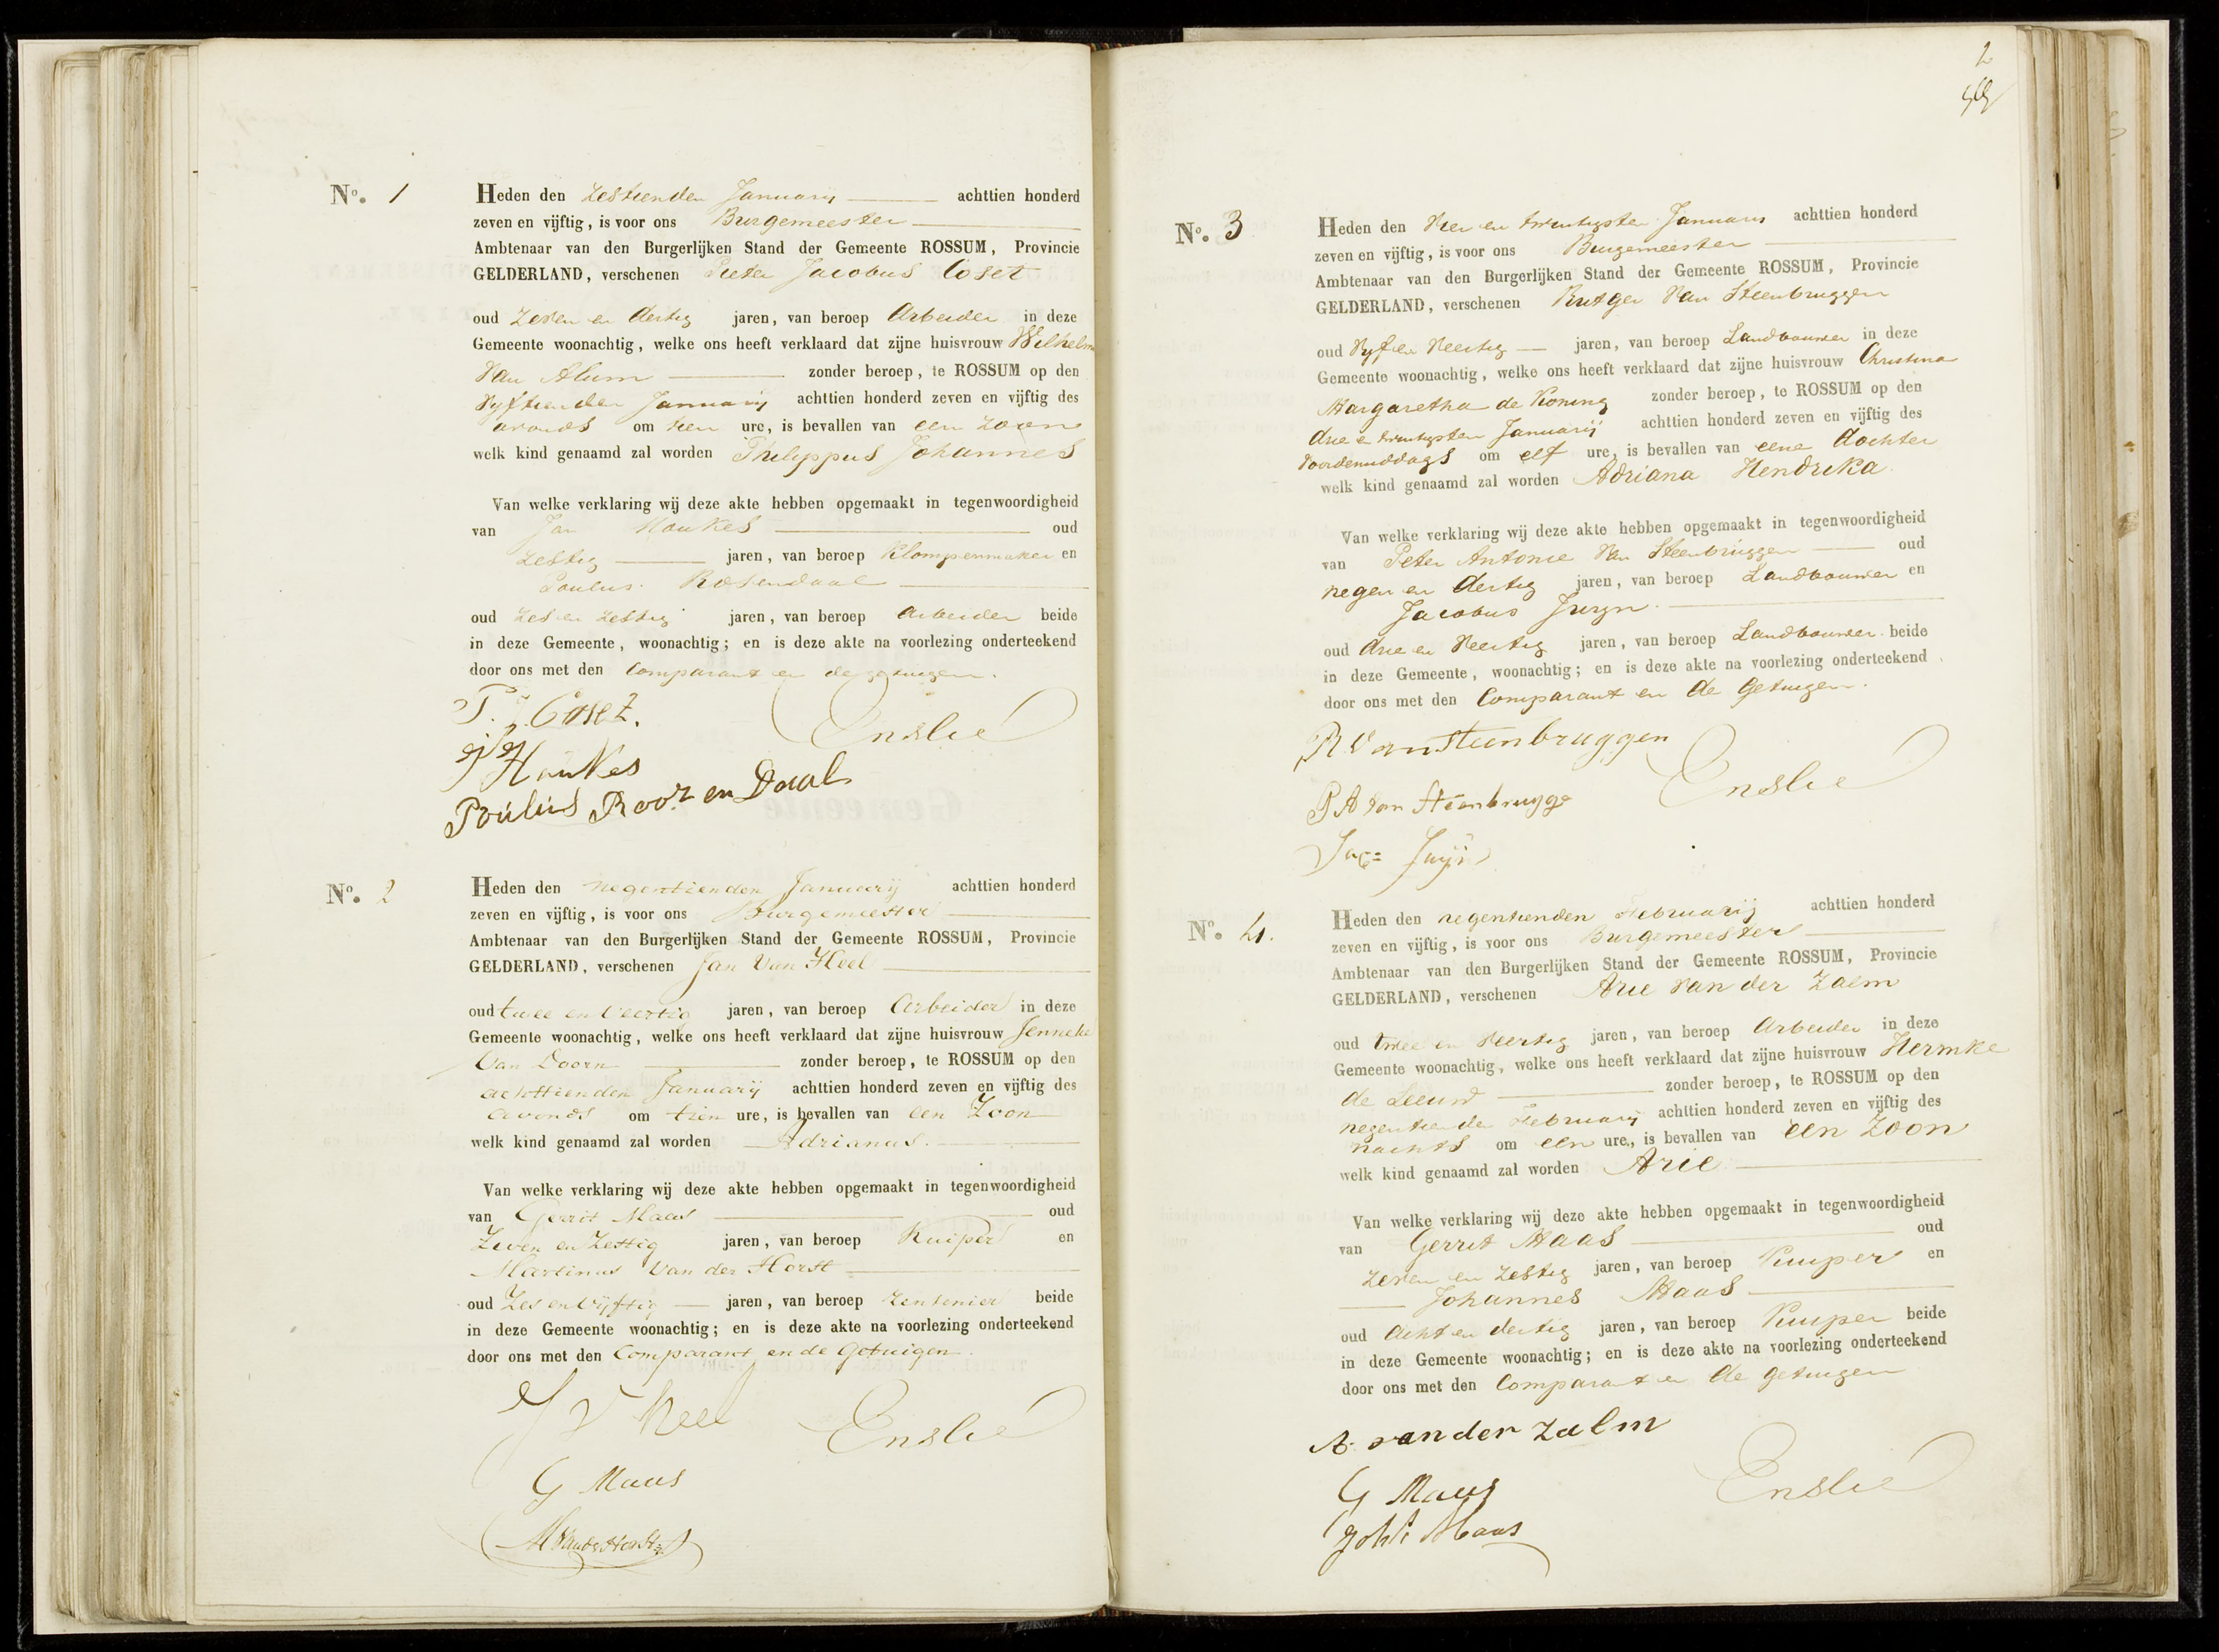 No. 1
Heden den Zestienden Januarij achttien honderd
zeven en vijftig, is voor ons Burgemeester
Ambtenaar van den Burgerlijken Stand der Gemeente ROSSUM, Provincie
GELDERLAND, verschenen Pieter Jacobus Coset
oud Zeven en dertig jaren, van beroep Arbeider in deze
Gemeente woonachtig, welke ons heeft verklaard dat zijne huisvrouw Wilhelm
Van Alum zonder beroep, te ROSSUM op den
Vyftienden Januarij achttien honderd zeven en vijftig des
avonds om tien ure, is bevallen van een zoon
welk kind genaamd zal worden Philippus Johannes
Van welke verklaring wij deze akte hebben opgemaakt in tegenwoordigheid
van Jan Haukes oud
Zestig jaren, van beroep Klompenmaker en
Paulus Rosendaal
oud Zes en Zestig jaren, van beroep Arbeider beide
in deze Gemeente, woonachtig; en is deze akte na voorlezing onderteekend
door ons met den Comparant en de getuigen.
P. J. Coset.
Enslie
Haukes
Poulus Roozendaal
No. 2
Heden den negentienden Januarij achttien honderd
zeven en vijftig, is voor ons Burgemeester
Ambtenaar van den Burgerlijken Stand der Gemeente ROSSUM, Provincie
GELDERLAND, verschenen Jan Van Heel
oud twee en Veertig jaren, van beroep Arbeider in deze
Gemeente woonachtig, welke ons heeft verklaard dat zijne huisvrouw Jenneke
Van Doorn zonder beroep, te ROSSUM op den
achttienden Januarij achttien honderd zeven en vijftig des
avonds om tien ure, is bevallen van een Zoon
welk kind genaamd zal worden Adrianus.
Van welke verklaring wij deze akte hebben opgemaakt in tegenwoordigheid
van Gerrit Maas oud
Zeven en Zestig jaren, van beroep Kuiper en
Martinus Van der Horst
oud Zes en Vijftig jaren, van beroep rentenier beide
in deze Gemeente woonachtig; en is deze akte na voorlezing onderteekend
door ons met den Comparant en de Getuigen.
J V Heel
Enslie
G Maas
M Van der Horst
2
No. 3
Heden den Vier en twintigsten Januarij achttien honderd
zeven en vijftig, is voor ons Burgemeester
Ambtenaar van den Burgerlijken Stand der Gemeente ROSSUM, Provincie
GELDERLAND, verschenen Rutger Van Steenbruggen
oud Vyf en Veertig jaren, van beroep Landbouwer in deze
Gemeente woonachtig, welke ons heeft verklaard dat zijne huisvrouw Christina
Margaretha de Koning zonder beroep, te ROSSUM op den
drie en twintigsten Januarij achttien honderd zeven en vijftig des
Voordemiddags om elf ure, is bevallen van eene dochter
welk kind genaamd zal worden Adriana Hendrika.
Van welke verklaring wij deze akte hebben opgemaakt in tegenwoordigheid
van Peter Antonie Van Steenbruggen oud
negen en dertig jaren, van beroep Landbouwer en
Jacobus Juyn
oud drie en Veertig jaren, van beroep Landbouwer beide
in deze Gemeente, woonachtig; en is deze akte na voorlezing onderteekend
door ons met den Comparant en de Getuigen.
R Van Steenbruggen
Enslie
P A van Steenbrugge
Jac= Juyn
No. 4.
Heden den negentienden Februarij achttien honderd
zeven en vijftig, is voor ons Burgemeester
Ambtenaar van den Burgerlijken Stand der Gemeente ROSSUM, Provincie
GELDERLAND, verschenen Arie Van der Zalm
oud twee en Veertig jaren, van beroep Arbeider in deze
Gemeente woonachtig, welke ons heeft verklaard dat zijne huisvrouw Hermke
de Leeuw zonder beroep, te ROSSUM op den
negentiende Februarij achttien honderd zeven en vijftig des
nachts om een ure, is bevallen van een Zoon
welk kind genaamd zal worden Arie
Van welke verklaring wij deze akte hebben opgemaakt in tegenwoordigheid
van Gerrit Maas oud
Zeven en Zestig jaren, van beroep Kuiper en
Johannes Maas
oud Acht en dertig jaren, van beroep Kuiper beide
in deze Gemeente woonachtig; en is deze akte na voorlezing onderteekend
door ons met den Comparant en de getuigen
A. van der Zalm
Enslie
G Maas
Johs Maas